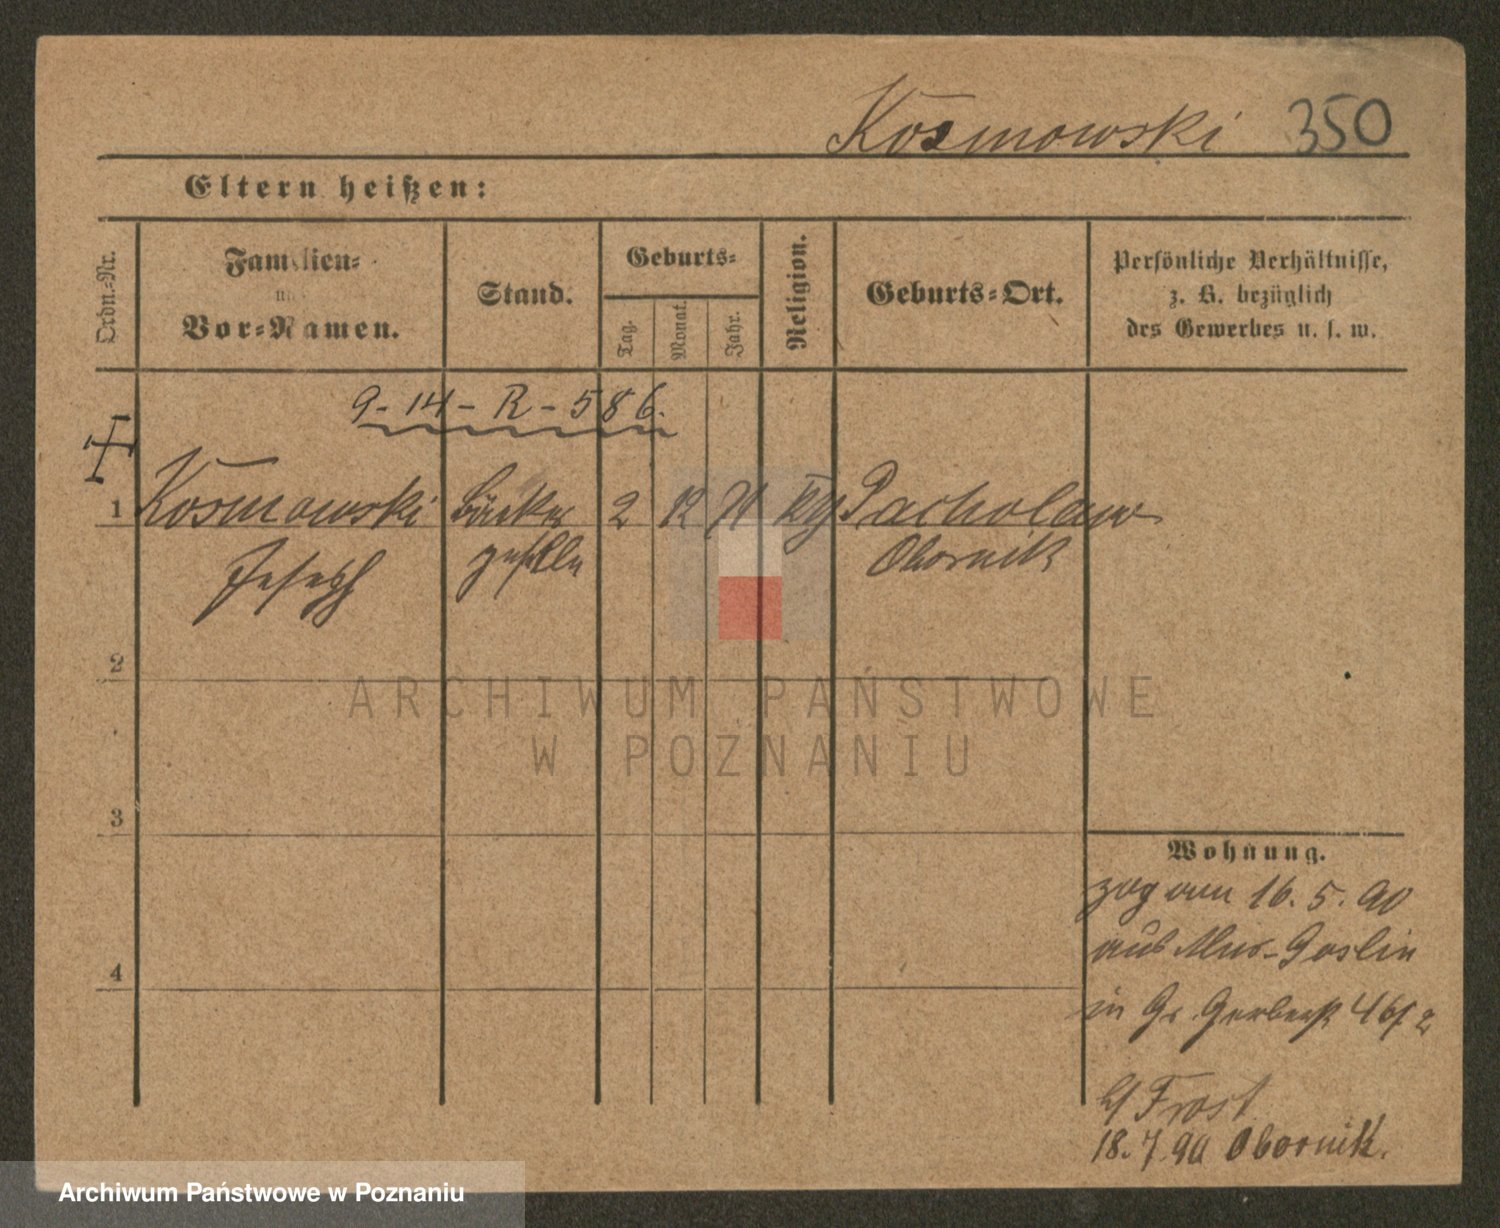 Kosmowski 350
Eltern heißen:
Ordn.-Nr.
Familien-
und
Vor-Namen.
Stand.
Geburts-
Tag.
Monat.
Jahr.
Religion.
Geburts-Ort.
Persönliche Verhältnisse,
z. B. bezüglich
des Gewerbes u. s. w.
9-14-R-586.
1 Kosmowski Bäcker 2 12 71 Pacholewo
Joseph geselle Obornik
2
3
4
Wohnung.
zog am 16.5.90
aus Mur-Goslin
in Gr. Gerberst
b/ Frost
18.7.90 Obornik.
ARCHIWUM PAŃSTWOWE
W POZNANIU
Archiwum Państwowe w Poznaniu